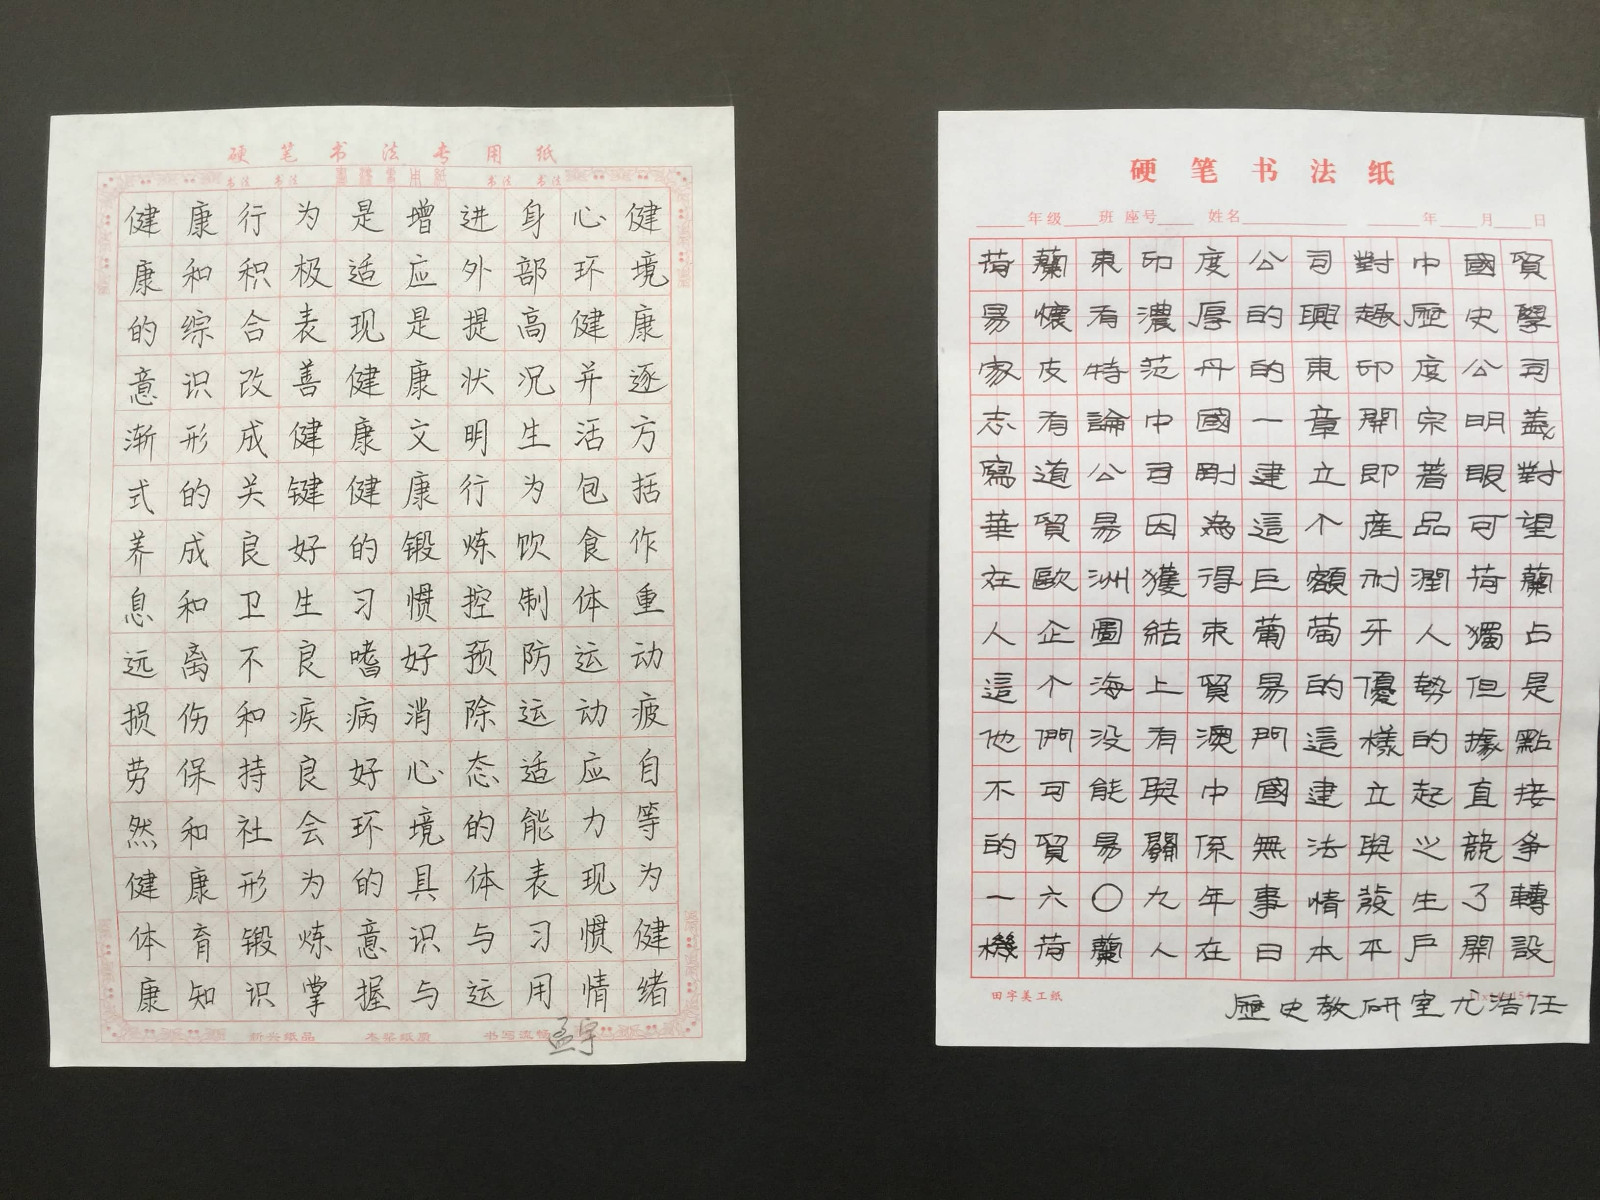 硬笔书法专用纸
书法 书法 书法 书法
健康行为是增进身心健
康和积极适应外部环境
的综合表现是提高健康
意识改善健康状况并逐
渐形成健康文明生活方
式的关键健康行为包括
养成良好的锻炼饮食作
息和卫生习惯控制体重
远离不良嗜好预防运动
损伤和疾病消除运动疲
劳保持良好心态适应自
然和社会环境的能力等
健康形为的具体表现为
体育锻炼意识与习惯健
康知识掌握与运用情绪
新兴纸品
孟宇
硬笔书法纸
年级 班 座号 姓名 年 月 日
荷蘭東印度公司對中國貿
易懷有濃厚的興趣歷史學
家皮特范丹的東印度公司
志有論中國一章開宗明義
寫道公司剛建立即著眼對
華貿易因為這个產品可望
在歐洲獲得巨額利潤荷蘭
人企圖結束葡萄牙人獨占
這个海上貿易的優勢但是
他們没有澳門這樣的據點
不可能與中國建立起直接
的貿易關係無法與之競爭
一六〇九年事情發生了轉
機荷蘭人在日本平戶開設
田字美工纸
歷史教研室尤浩任